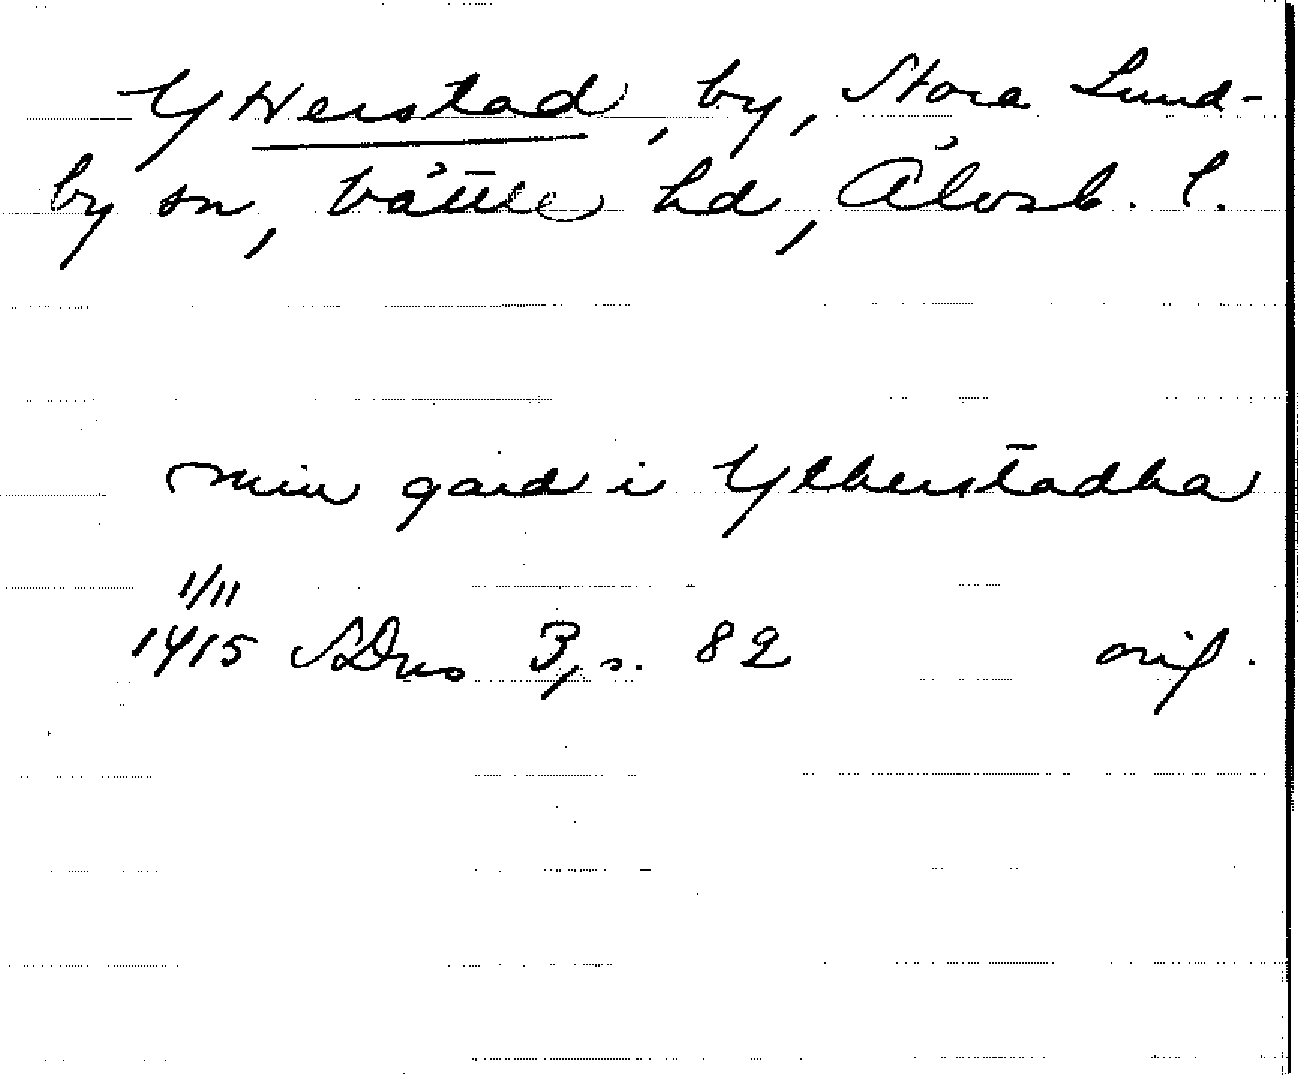 Ytterstad, by, Stora Lund-
by sn, Vättle hd, Älvsb. l.
min gard i Ytherstadha
1/11
1415 SDns 3, s. 82 orig.